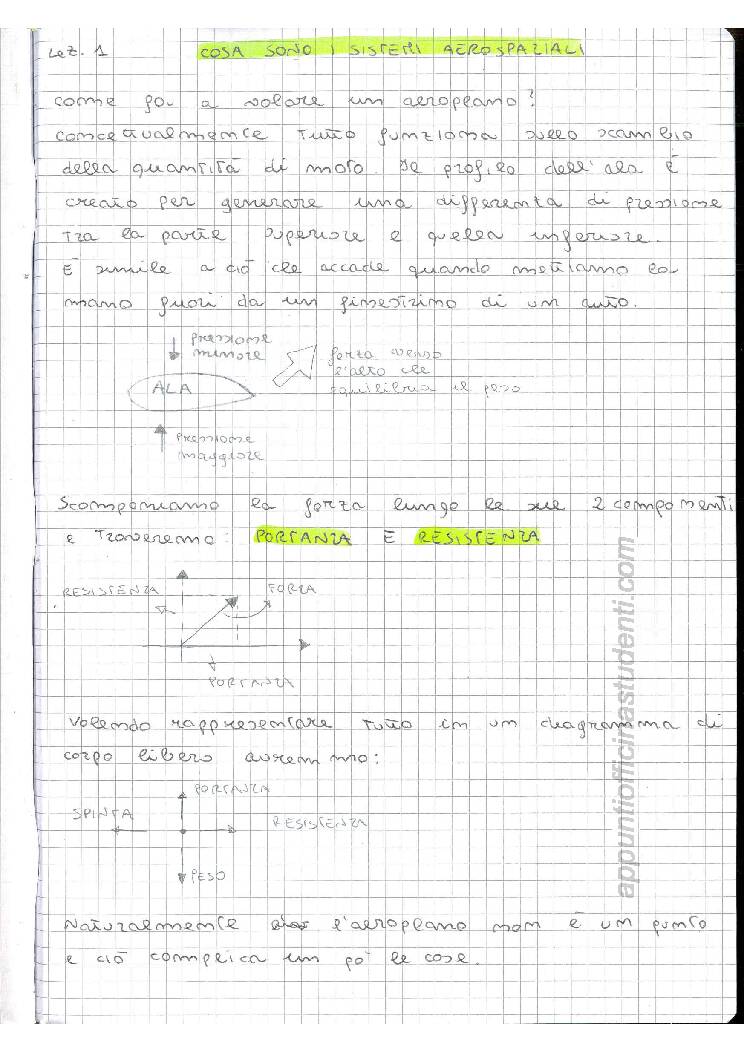 Lez. 1 COSA SONO I SISTEMI AEROSPAZIALI
come fa a volare un aeroplano?
concettualmente tutto funziona sullo scambio
della quantità di moto. Il profilo dell'ala è
creato per generare una differenza di pressione
tra la parte superiore e quella inferiore.
È simile a ciò che accade quando mettiamo la
mano fuori da un finestrino di un auto.
pressione
minore
forza verso
l'alto che
equilibria il peso
ALA
pressione
maggiore
Scomponiamo la forza lungo le sue 2 componenti
e troveremo: PORTANZA E RESISTENZA
RESISTENZA
FORZA
PORTANZA
Volendo rappresentare tutto in un diagramma di
corpo libero avremmo:
PORTANZA
SPINTA
RESISTENZA
PESO
Naturalmente l'aeroplano non è un punto
e ciò complica un po' le cose.
appuntiofficinastudenti.com